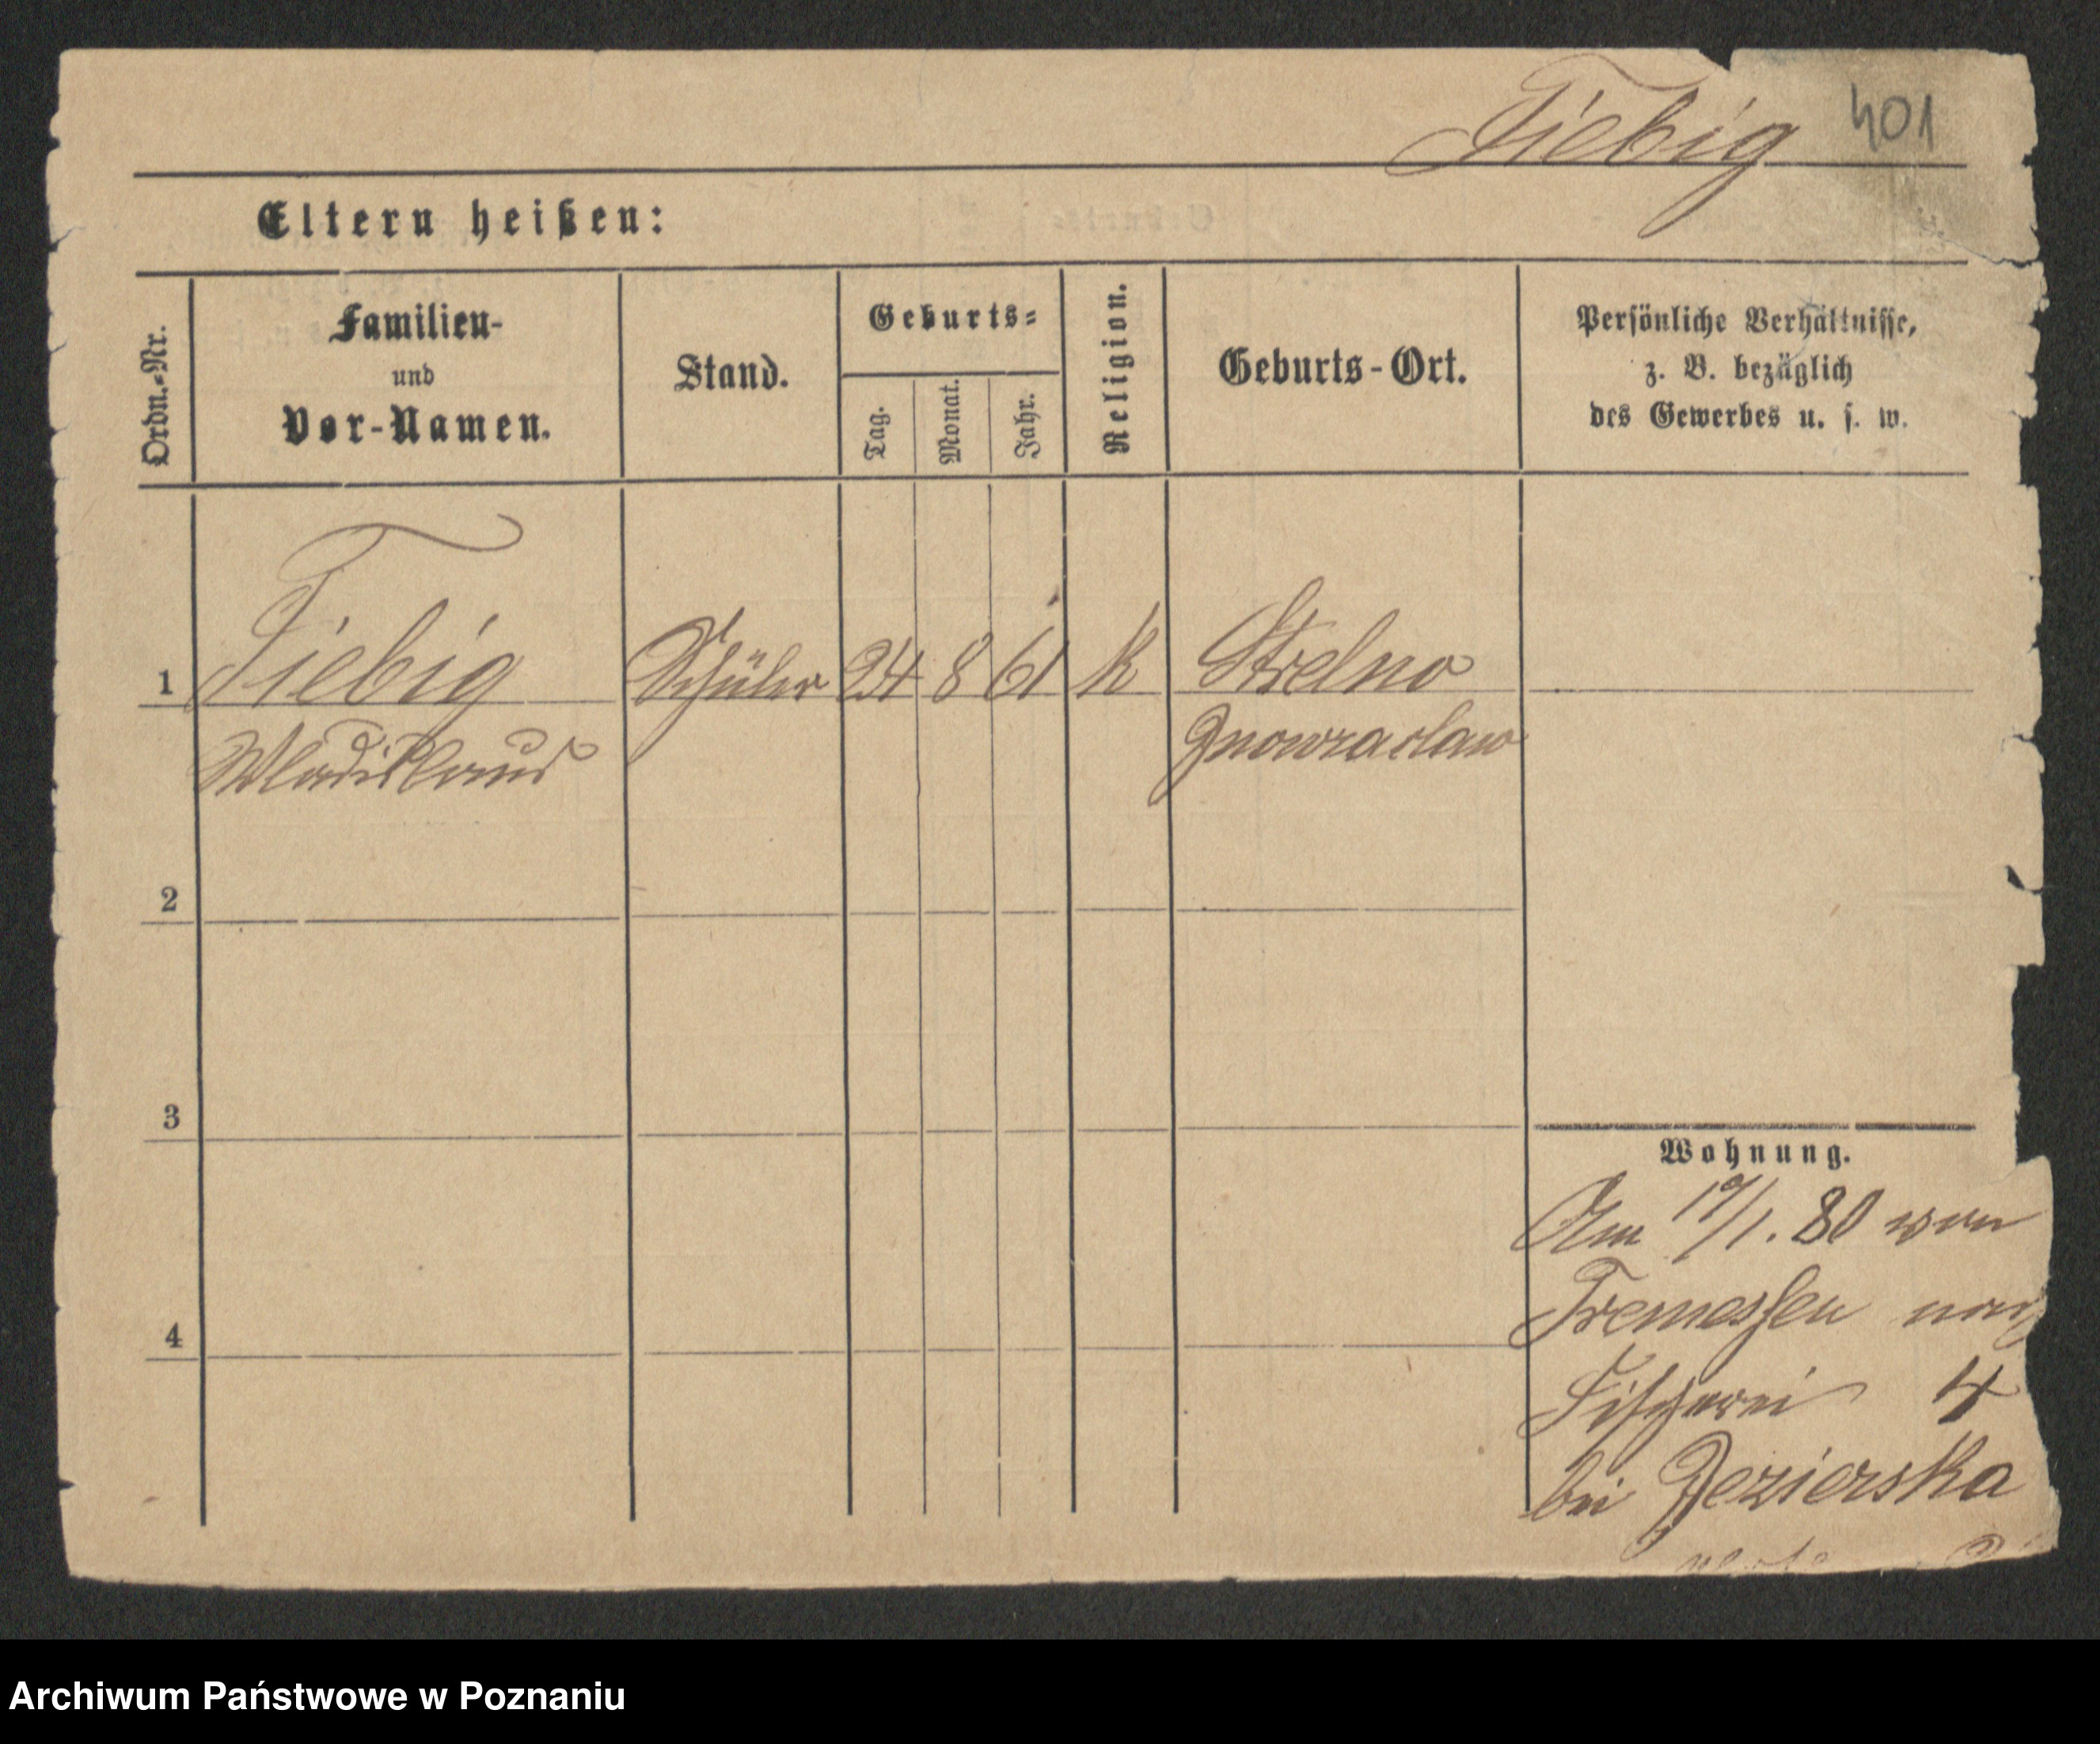 Fiebig 401
Eltern heißen:
Ordn.-Nr.
Familien-
und
Vor-Namen.
Stand.
Geburts-
Tag.
Monat.
Jahr.
Religion.
Geburts-Ort.
Persönliche Verhältnisse,
z. B. bezüglich
des Gewerbes u. s. w.
1 Fiebig Schüler 24 8 61 K Strelno
Wladislaus Inowraclaw
2
3
4
Wohnung.
Am 19/1. 80 von
Tremessen nach
Fischerei 4
bei Jezierska
Archiwum Państwowe w Poznaniu